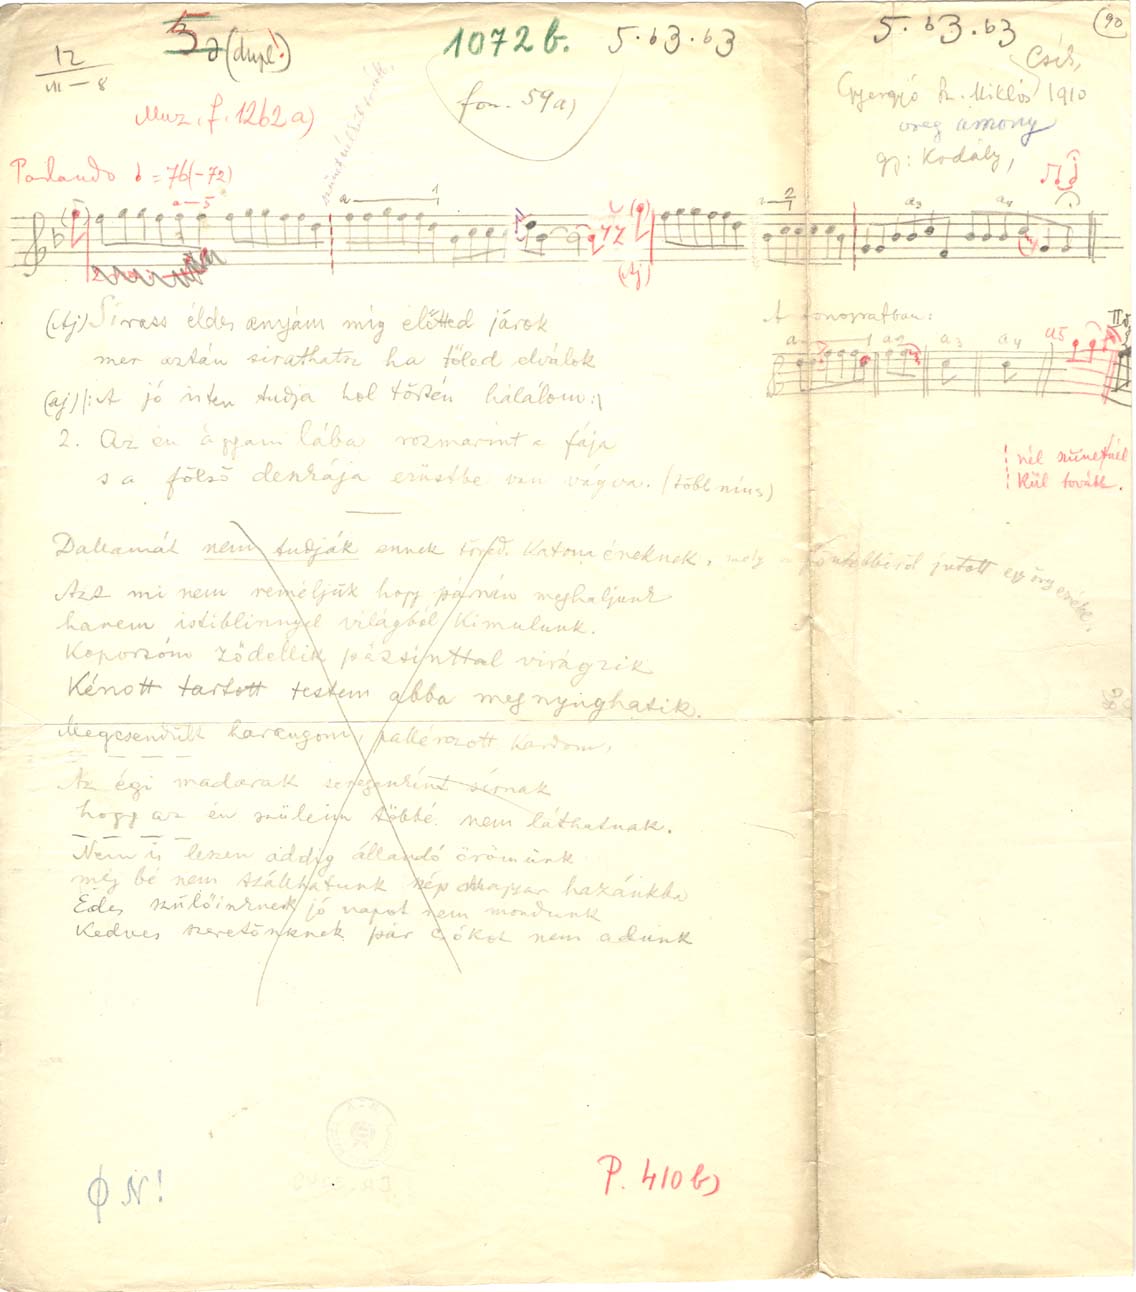 12
III – 8
5 d (dupl!)
1072 b.
5. b3. b3
5. b3. b3
(90
Csík,
fon. 59a)
Gyergyó Sz. Miklós 1910
öreg asszony
gy: Kodály,
Muz. f. 1262a)
Parlando = 76(-72)
a—5
a 1
2
a3
a4
(Aj)
(Aj) Sirass éldes anyám míg előtted járok
mer aztán sirathatsz ha tőled elválok
(aj) |: A jó isten tudja hol történ hálálom :|
2. Az én ágyam lába rozmarint a fája
s a fölső deszkája ezüstbe van vágva. (több nincs)
A fonografban:
a 1 a2 a3 a4 a5
nél szünetnél
kül tovább.
Dallamát nem tudják ennek a Katona éneknek, mely
Azt mi nem reméljük hogy párnán meghaljunk
hanem istiblinnyel világból kimulunk.
Koporsóm ződellik pázsinttal virágzik
Kénott tartott testem abba megnyughatik.
Megcsendült harangom, pallérozott kardom,
Az égi madarak seregenkint sírnak
hogy az én szüleim többé nem láthatnak.
Nem is leszen addig állandó örömünk
míg bé nem szállhatunk szép Magyar hazánkba
Édes szülőinknek jó napot nem mondunk
Kedves szeretőnknek pár csókot nem adunk
Φ N!
P. 410 b)